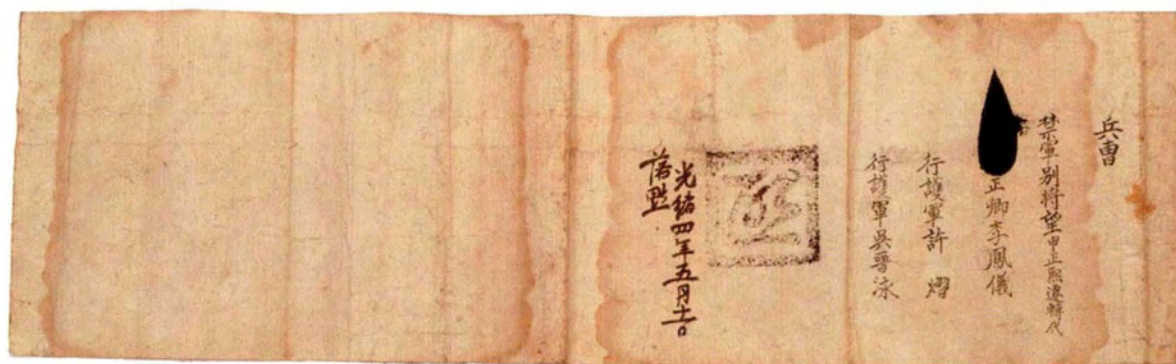 兵曺
禁軍別將望申正熙遷轉代
正卿李鳳儀
行護軍許 熠
行護軍吳晋泳
光緒四年五月十一日
落點